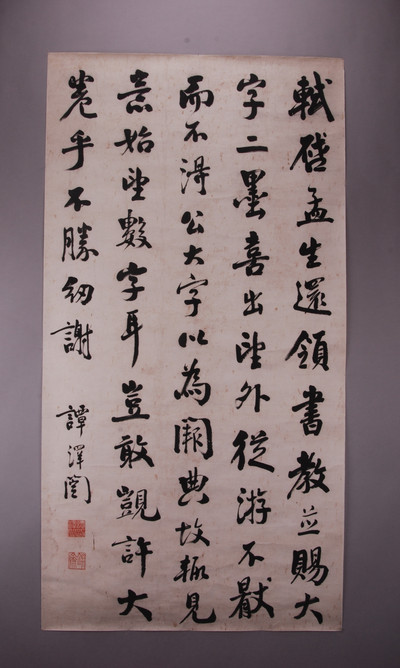 軾啓孟生還領書教並賜大
字二墨喜出望外從游不厭
而不得公大字以為闕典故輒見
意始望數字耳豈敢覬許大
卷乎不勝紉謝
譚澤闓